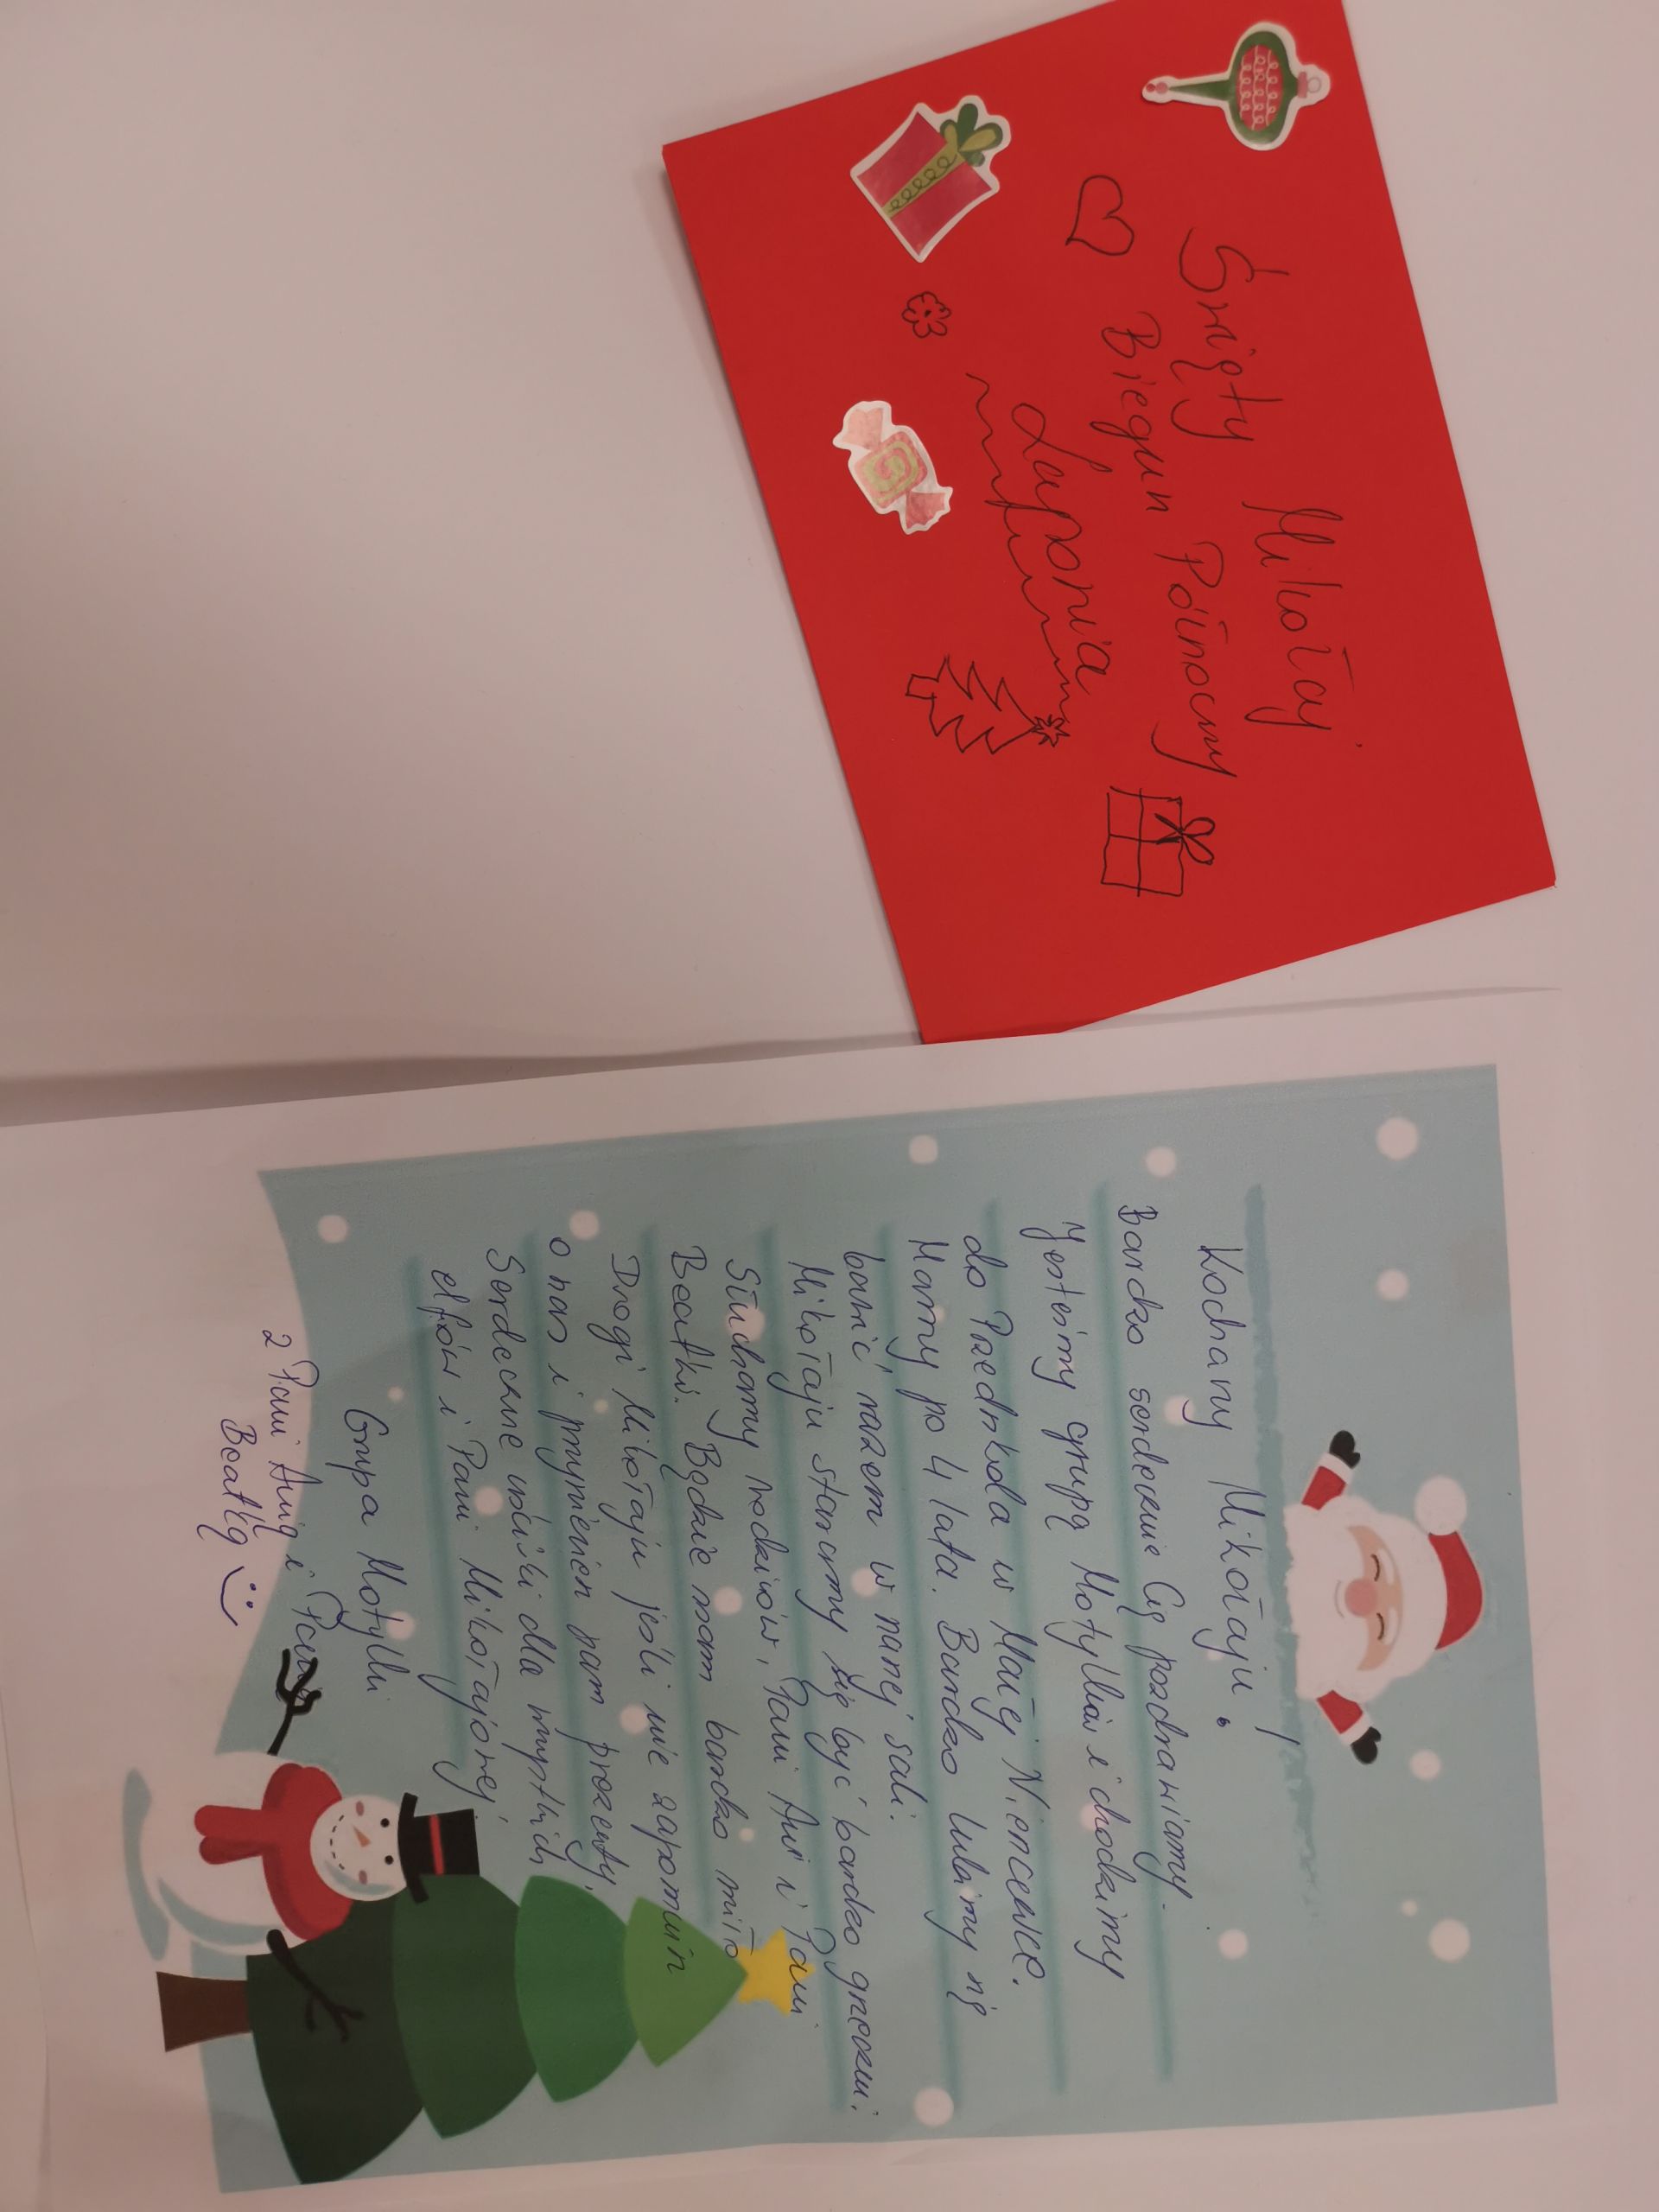 Święty Mikołaj
Biegun Północny
Laponia
Kochany Mikołaju!
Bardzo serdecznie Cię pozdrawiamy.
Jesteśmy grupą Motylków i chodzimy
do Przedszkola w Małej Nieszawce.
Mamy po 4 lata. Bardzo lubimy się
bawić razem w naszej sali.
Mikołaju staramy się być bardzo grzeczni.
Słuchamy rodziców, Pani Ani i Pani
Beatki. Będzie nam bardzo miło
Drogi Mikołaju jeśli nie zapomnisz
o nas i przyniesiesz nam prezenty.
Serdeczne uściski dla wszystkich
elfów i Pani Mikołajowej
Grupa Motylki
z Panią Anią i Panią
Beatką